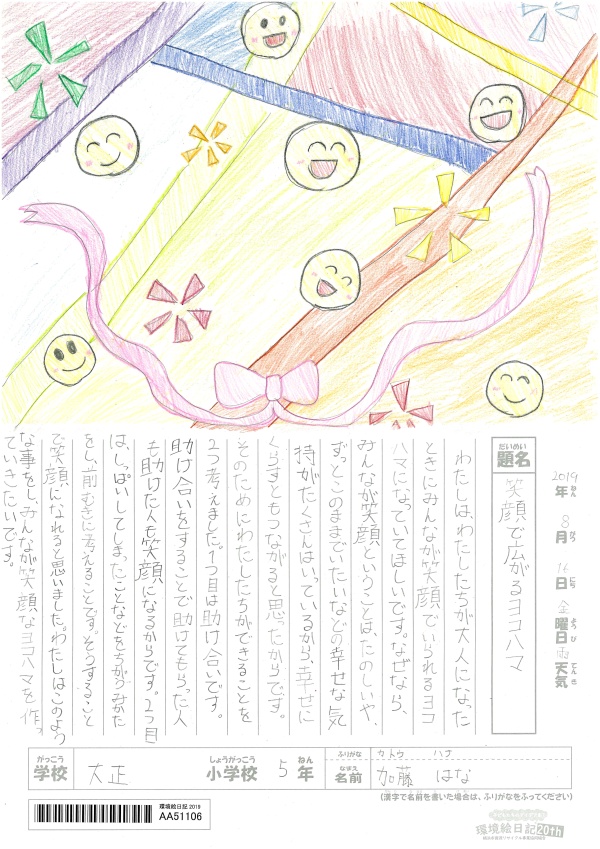 2019年 8月 16日 金曜日 雨天気
ねん がつ にち ようび てんき
だいめい
題名
笑顔で広がるヨコハマ
わたしは、わたしたちが大人になった
ときにみんなが笑顔でいられるヨコ
ハマになっていてほしいです。なぜなら、
みんなが笑顔ということは、たのしいや、
ずっとこのままでいたいなどの幸せな気
持がたくさんはいっているから、幸せに
くらすともつながると思ったからです。
そのためにわたしたちができることを
2つ考えました。1つ目は助け合いです。
助け合いをすることで助けてもらった人
も助けた人も笑顔になるからです。2つ目
は、しっぱいしてしまったことなどをちがうみかた
をし、前むきに考えることです。そうすること
で笑顔になれると思いました。わたしはこのよう
な事をし、みんなが笑顔なヨコハマを作っ
ていきたいです。
がっこう
学校
大正
しょうがっこう
小学校
5
ねん
年
ふりがな
カトウ ハナ
なまえ
名前
加藤 はな
(漢字で名前を書いた場合は、ふりがなをふってください)
環境絵日記 2019
AA51106
環境絵日記20th